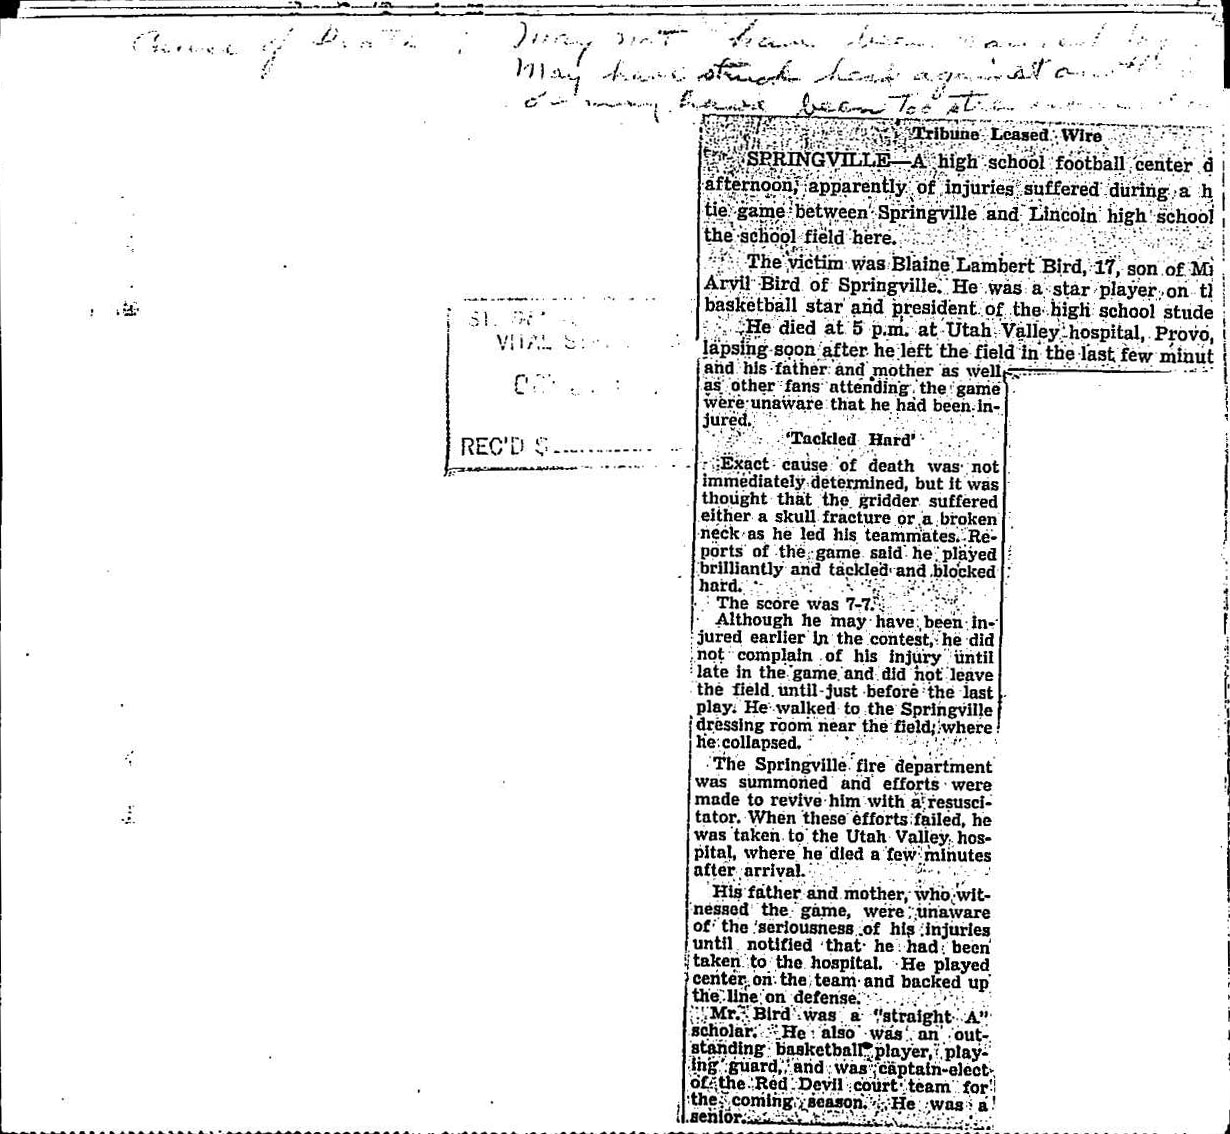 Cause of Death : May not have been caused by
May have struck head against
or may have been too
Tribune Leased Wire
SPRINGVILLE—A high school football center d
afternoon, apparently of injuries suffered during a h
tie game between Springville and Lincoln high school
the school field here.
The victim was Blaine Lambert Bird, 17, son of M
Arvil Bird of Springville. He was a star player on t
basketball star and president of the high school stude
He died at 5 p.m. at Utah Valley hospital, Provo,
lapsing soon after he left the field in the last few minut
and his father and mother as well
as other fans attending the game
were unaware that he had been in-
jured.
'Tackled Hard'
Exact cause of death was not
immediately determined, but it was
thought that the gridder suffered
either a skull fracture or a broken
neck as he led his teammates. Re-
ports of the game said he played
brilliantly and tackled and blocked
hard.
The score was 7-7.
Although he may have been in-
jured earlier in the contest, he did
not complain of his injury until
late in the game and did not leave
the field until just before the last
play. He walked to the Springville
dressing room near the field, where
he collapsed.
The Springville fire department
was summoned and efforts were
made to revive him with a resusci-
tator. When these efforts failed, he
was taken to the Utah Valley hos-
pital, where he died a few minutes
after arrival.
His father and mother, who wit-
nessed the game, were unaware
of the seriousness of his injuries
until notified that he had been
taken to the hospital. He played
center on the team and backed up
the line on defense.
Mr. Bird was a "straight A"
scholar. He also was an out-
standing basketball player, play-
ing guard, and was captain-elect
of the Red Devil court team for
the coming season. He was a
senior.
VITAL
REC'D